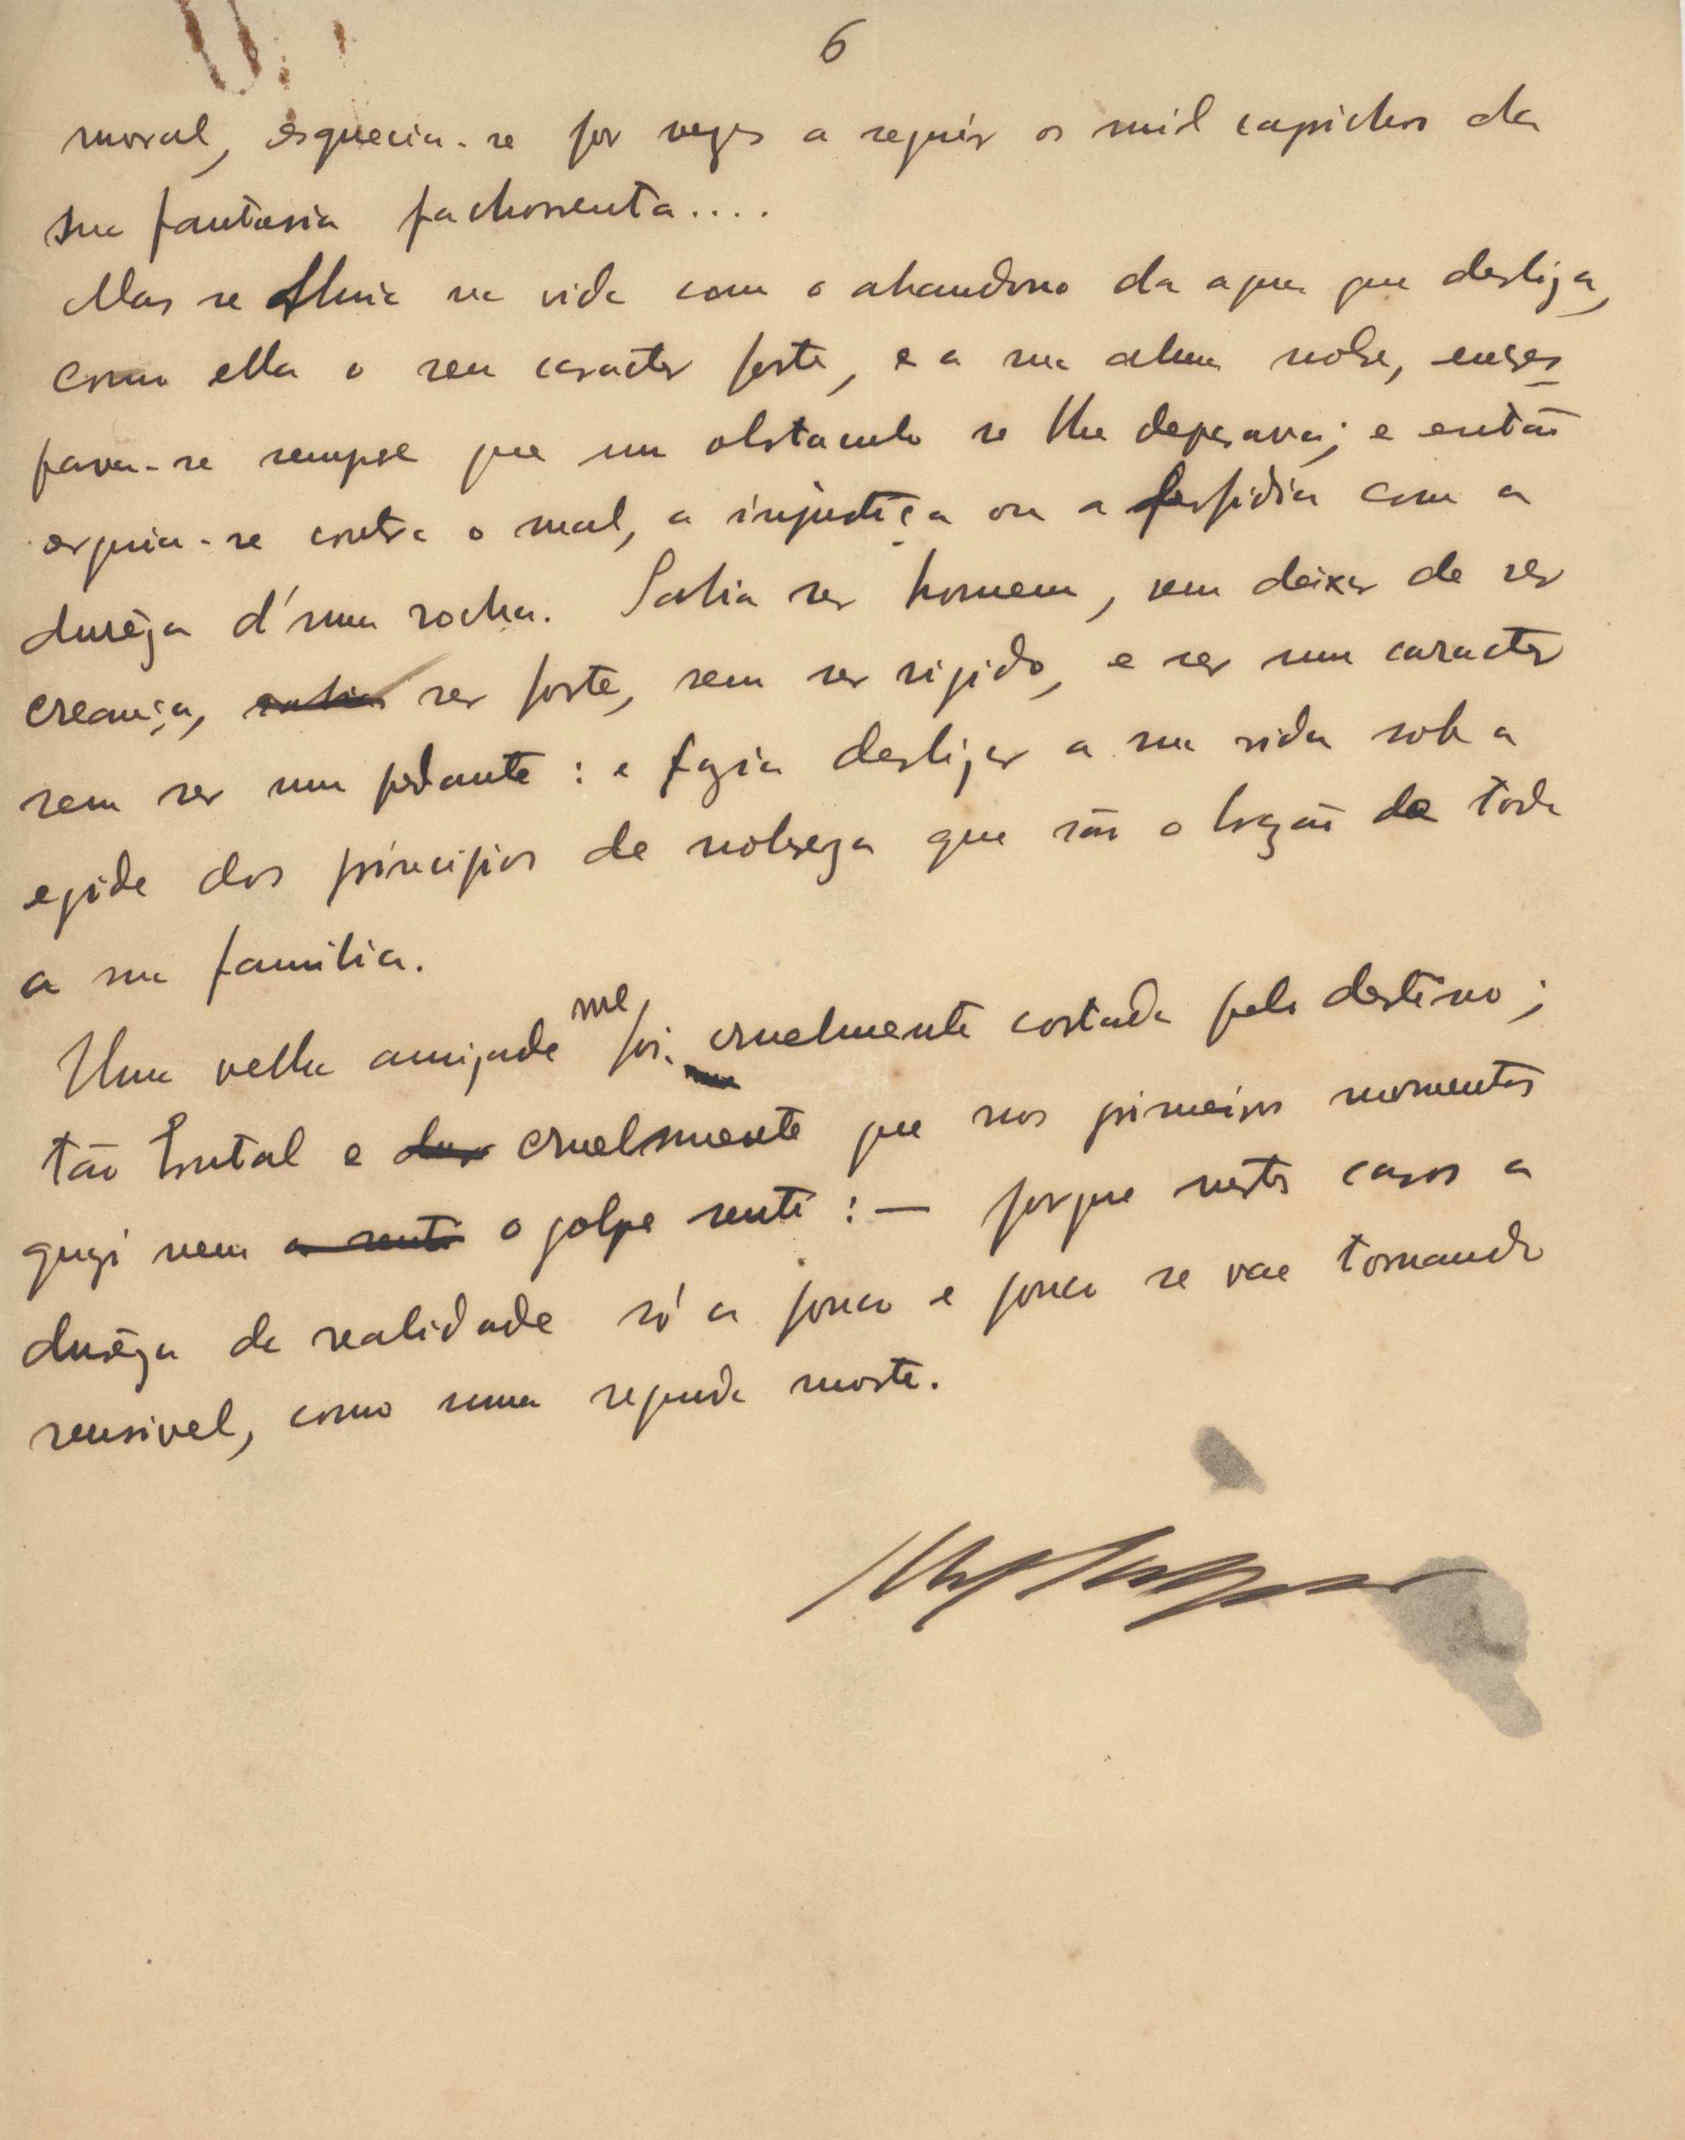 6
moral, esquecia-se por vezes a seguir os mil caprichos da
sua fantasia pachorrenta....
Mas se fluia na vida com o abandono da agua que desliza,
como ella o seu caracter forte, e a sua alma nobre, encres
pava-se sempre que um obstaculo se lhe deparava; e então
erguia-se contra o mal, a injustiça ou a perfidia com a
durêza d'uma rocha. Sabia ser homem, sem deixar de ser
creança, sabia ser forte, sem ser rigido, e ser um caracter
sem ser um pedante: e fazia deslizar a sua vida sob a
egide dos principios de nobreza que são o brazão de toda
a sua familia.
Uma velha amizade me foi cruelmente cortada pelo destino;
tão brutal e cruelmente que nos primeiros momentos
quazi nem a senti o golpe senti:— porque nestes casos a
durêza da realidade só a pouco e pouco se vae tornando
sensivel, como uma segunda morte.